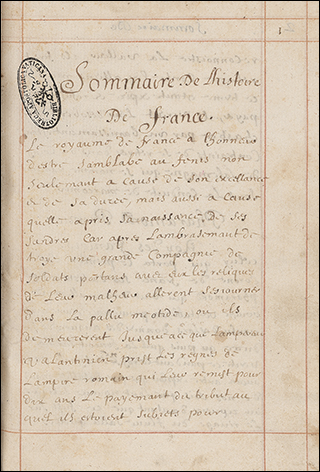 1
Sommaire De lhistoire
De France.
Le royaume de France a lhonneur
destre samblable au fenis non
seulemant a cause de son excellance
& de sa duree, mais aussi a cause
quelle a pris sa naissance de ses
sandres Car apres lambrasemant de
troye une grande Compagnie de
soldats portans avec eux les reliques
de leur malheur allerent sejourner
dans la pallu meotide, ou ils
demeurerent jusqu ace que lampereur
Valantinien prist les resnes de
lampire romain qui leur remist pour
dix ans le payemant du tribut au
quel ils estoient subiets pour